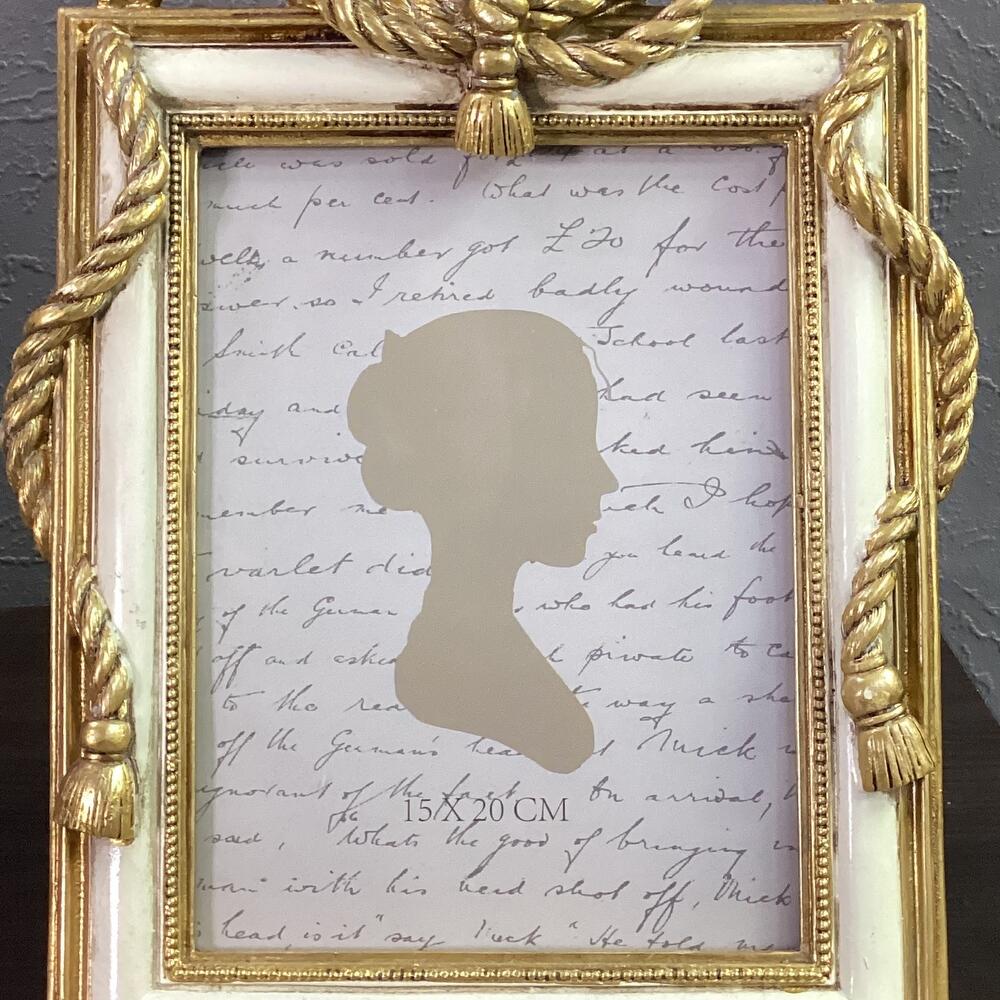 was sold at a
much per cent. What was the Cost
well, a number got £20 for the
swer, so I retired badly wound
Smith School last
day and had seen
survive ked him
member me I hop
varlet did you heard the
of the German , who had his foot
off and asked private to ca
to the rea way a she
off the German's hea Mick
ignorant of the fact On arrival,
15 X 20 CM
said, Whats the good of bringing
man with his head shot off, Mick
head, is it" say Mick "He told me